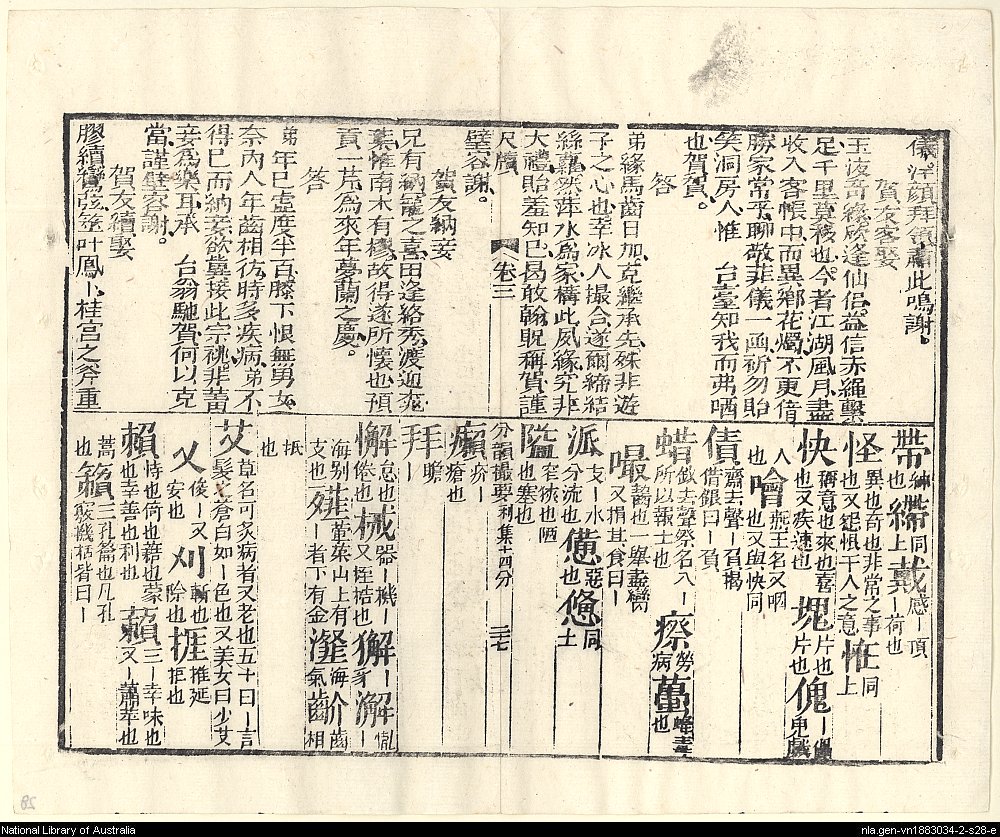 儀洋顔拜領肅此鳴謝。
賀友客娶
玉液奇緣欣逢仙侶益信赤繩繫
足千里莫移也今者江湖風月盡
收入客帳中而異鄉花燭不更倍
勝家常乎聊敬非儀一函祈勿貽
笑洞房人惟 台臺知我而弗哂
也賀賀。
答
弟緣馬齒日加克繼承先殊非遊
子之心也幸冰人撮合遂爾締結
絲蘿然萍水為家構此夙緣究非
大禮貽羞知己曷敢翰貺稱賀謹
尺牘 卷三
璧容謝。
賀友納妾
兄有納寵之喜田逢絡秀渡迎
葉惟南木有樛故得遂所懷也預
貢一芹為來年夢蘭之慶。
答
弟年已虛度半百膝下恨無男女
奈內人年齒相彷時多疾病弟不
得已而納妾欲冀接此宗祧非蓄
妾為樂耳承 台翁馳賀何以克
當謹璧容謝。
賀友續娶
膠續鸞弦筵叶鳳卜桂宮之斧重
帶紳也繃同上戴感一頂一荷也
怪異也奇也非常之事也又疑惧干人之意恠同上
快稱意也來也喜也又疾速也塊片也片也傀一儡鬼戲
人也噲燕王名又咽也又與快同
債齋去聲一眉揭借銀曰一負
蜡鈛去聲祭名八一所以報土也瘵勞病蠆蜂毒也
嘬齧也一舉盡臠又捐其食曰一
派支一水分流也憊惡也㥋同上
隘窄狹也陋也塞也
分韻撮要利集十四分 三七
癩疥一瘡也
拜一瞻
懈怠也倦也械器一機一又桎梏也獬一牙澥一
海別支也薤葷菜山上有一者下有金瀣氣海齘齒相
㧡也
艾草名可炙病者又老也五十曰一言髮之蒼白如一色也又美女曰少艾
乂俊一又安也刈斬也除也捱推延拒也
賴恃也倚也藉也蒙也幸也善也利也藾一蕭又一苹也
萵也籟三孔籥也凡孔竅機括皆曰一
National Library of Australia
nla.gen-vn1883034-2-s28-e